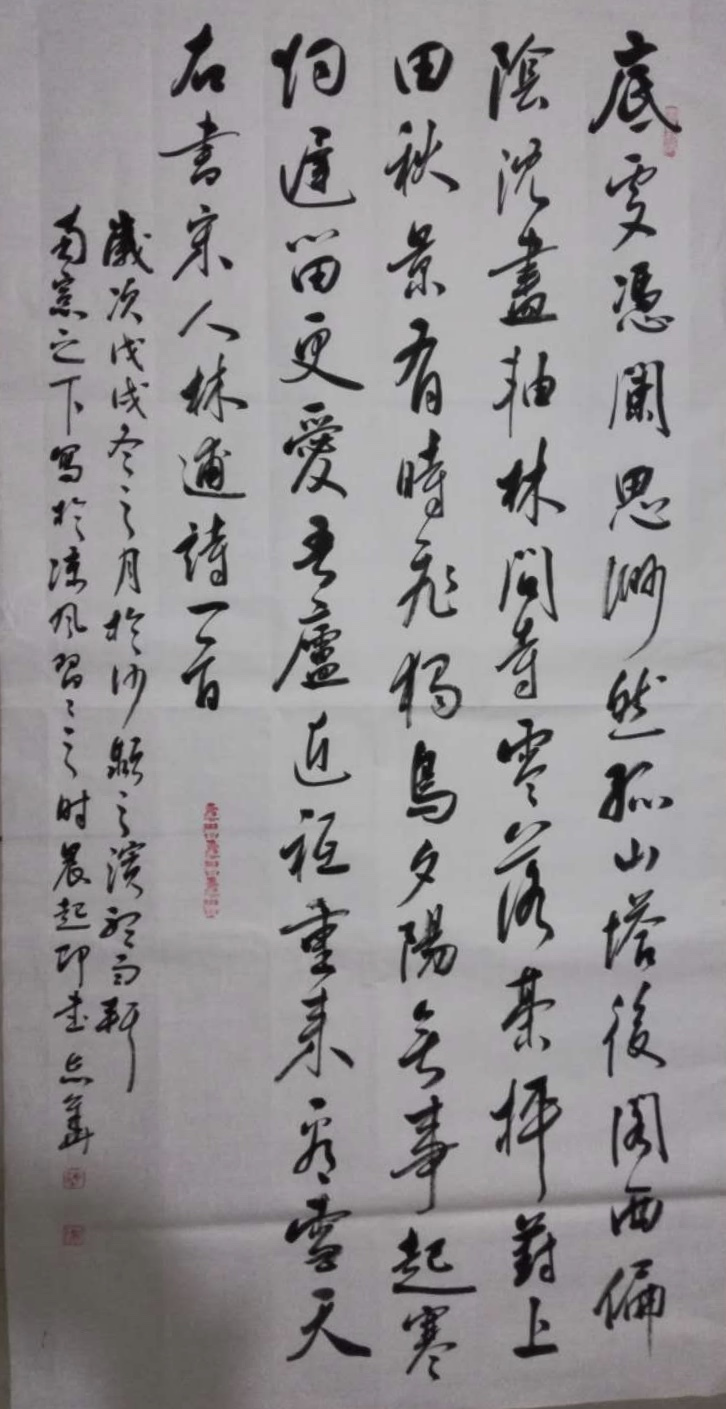 底處憑闌思渺然孤山塔後閣西偏
陰沈畫軸林間寺零落棊枰葑上
田秋景有時飛獨鳥夕陽無事起寒
烟遲留更愛吾廬近祗重來看雪天
右書宋人林逋詩一首
歲次戊戌冬之月於沙潁之濱聽雨軒
南窗之下寫於涼風習習之时晨起即書